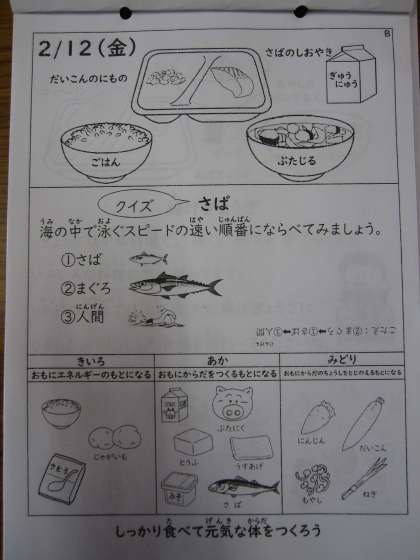 B
2/12(金)
さばのしおやき
だいこんのにもの
ぎゅう
にゅう
ごはん
ぶたじる
クイズ
さば
うみ なか およ はや じゅんばん
海の中で泳ぐスピードの速い順番にならべてみましょう。
①さば
②まぐろ
にんげん
③人間
こたえ：②まぐろ➡①さば➡③人間
にんげん
きいろ
あか
みどり
おもにエネルギーのもとになる
おもにからだをつくるもとになる
おもにからだのちょうしをととのえるもとになる
ぶたにく
にんじん
だいこん
じゃがいも
とうふ
うすあげ
さとう
みそ
さば
もやし
ねぎ
た げんき からだ
しっかり食べて元気な体をつくろう